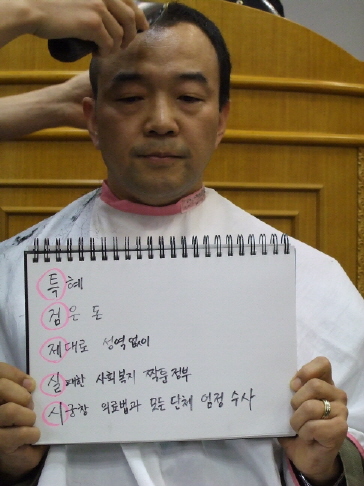 특혜
검은 돈
제대로 성역없이
실패한 사회복지 짝퉁정부
시궁창 의료법과 모든 단체 엄정 수사